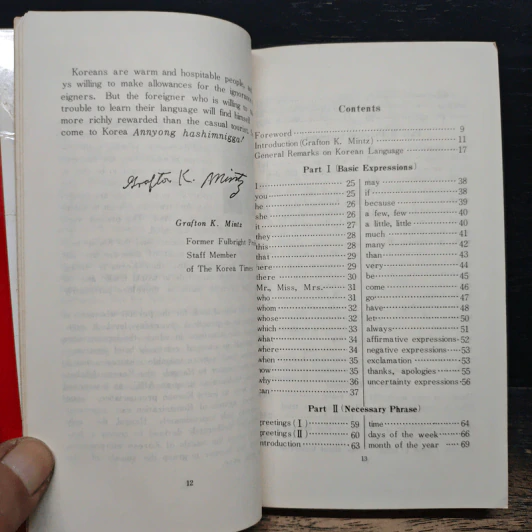 Koreans are warm and hospitable people,
ys willing to make allowances for the ignorance
eigners. But the foreigner who is willing to
trouble to learn their language will find himself
more richly rewarded than the casual tourist.
come to Korea Annyong hashimnigga!
Grafton K. Mintz
Grafton K. Mintz
Former Fulbright
Staff Member
of The Korea Times
12
Contents
Foreword 9
Introduction (Grafton K. Mintz) 11
General Remarks on Korean Language 17
Part I (Basic Expressions)
I 25
you 25
he 26
she 26
it 27
they 28
this 28
that 29
here 29
there 30
Mr., Miss, Mrs. 31
who 31
whom 32
whose 32
which 33
what 34
where 34
when 35
how 35
why 36
can 37
may 38
if 38
because 39
a few, few 40
a little, little 40
much 41
many 42
than 43
very 44
be 45
come 46
go 47
have 48
let 50
always 51
affirmative expressions 52
negative expressions 53
exclamation 53
thanks, apologies 55
uncertainty expressions 56
Part II (Necessary Phrase)
greetings (I) 59
greetings (II) 60
introduction 63
time 64
days of the week 66
month of the year 69
13